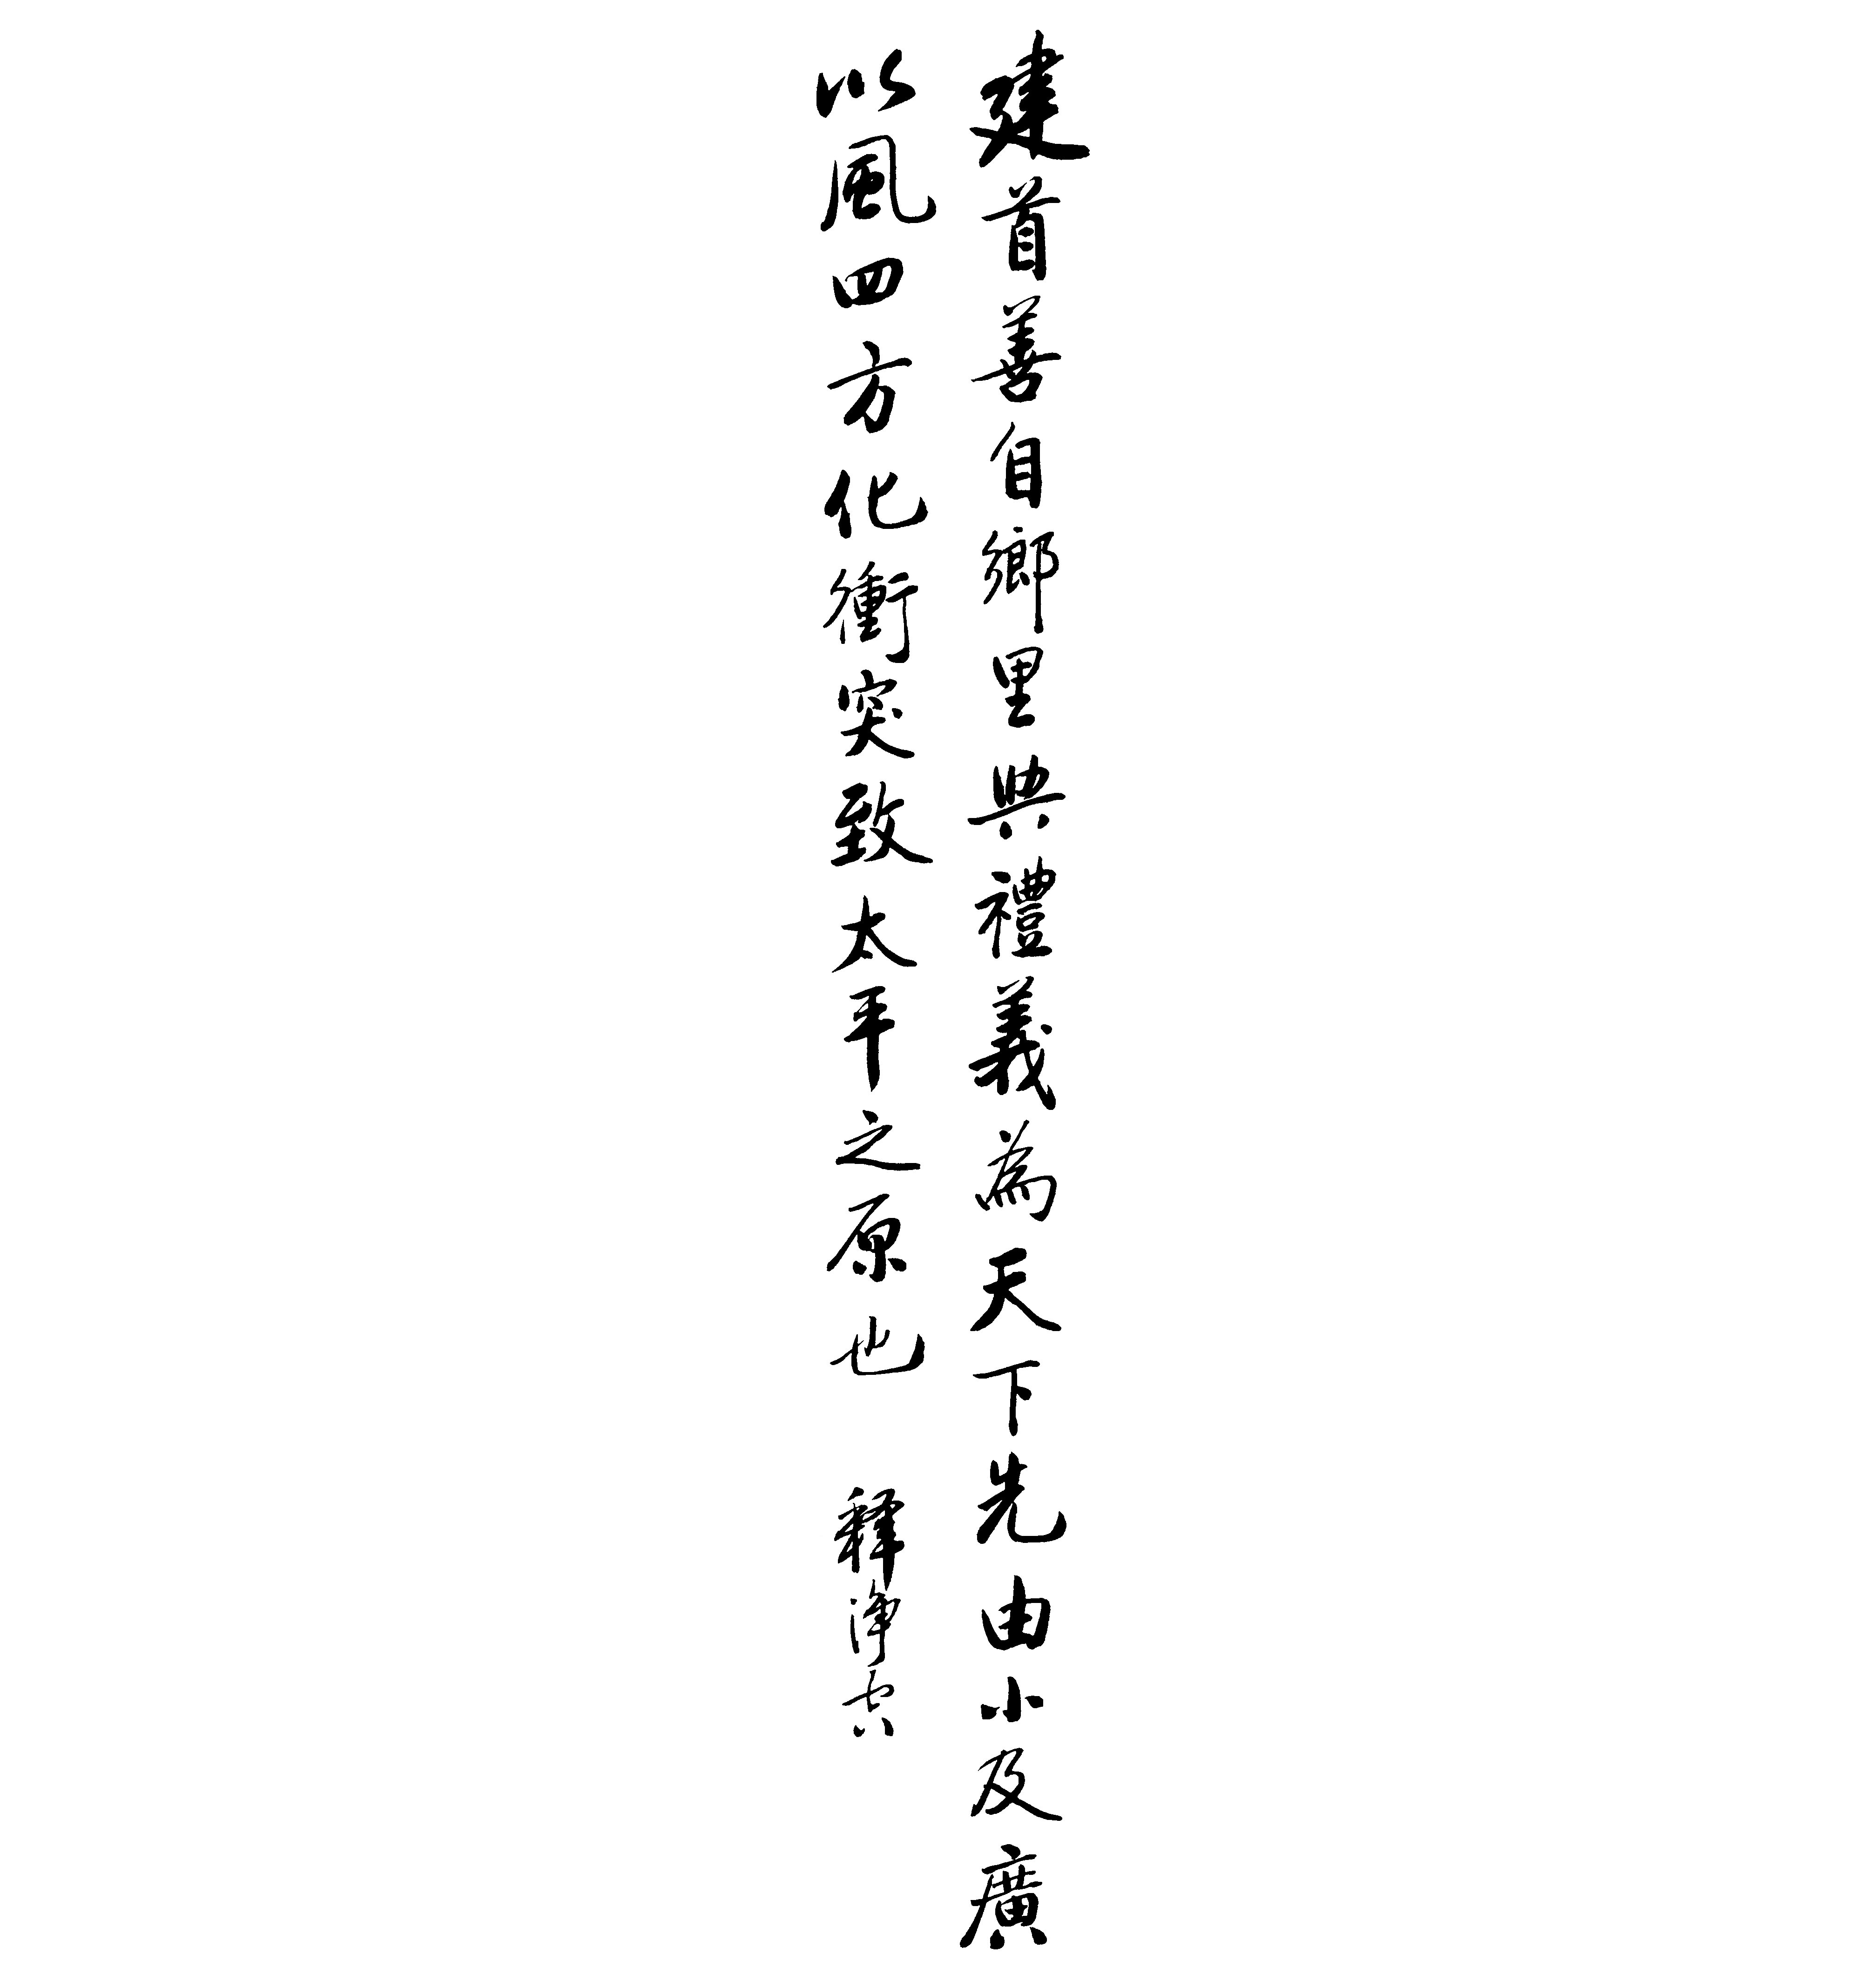 建首善自鄉里典禮義為天下先由小及廣
以風四方化衝突致太平之原也 釋淨空